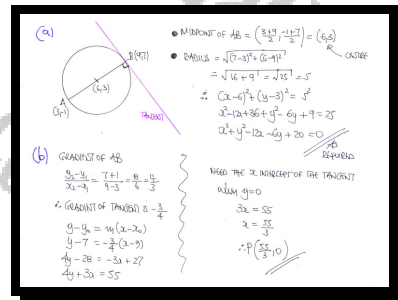 (a)
B(9,7)
(6,3)
A
(3,-1)
TANGENT
• MIDPOINT OF AB = (3+9/2, -1+7/2) = (6,3)
CENTRE
• RADIUS = √(7-3)²+(6-9)²
= √16+9 = √25 = 5
∴ (x-6)²+(y-3)² = 5²
x²-12x+36+y²-6y+9 = 25
x²+y²-12x-6y+20 = 0
AS REQUIRED
(b) GRADIENT OF AB
y₂-y₁/x₂-x₁ = 7+1/9-3 = 8/6 = 4/3
∴ GRADIENT OF TANGENT IS -3/4
y-y₀ = m(x-x₀)
y-7 = -3/4(x-9)
4y-28 = -3x+27
4y+3x = 55
NEED THE x INTERCEPT OF THE TANGENT
when y=0
3x = 55
x = 55/3
∴ P(55/3, 0)